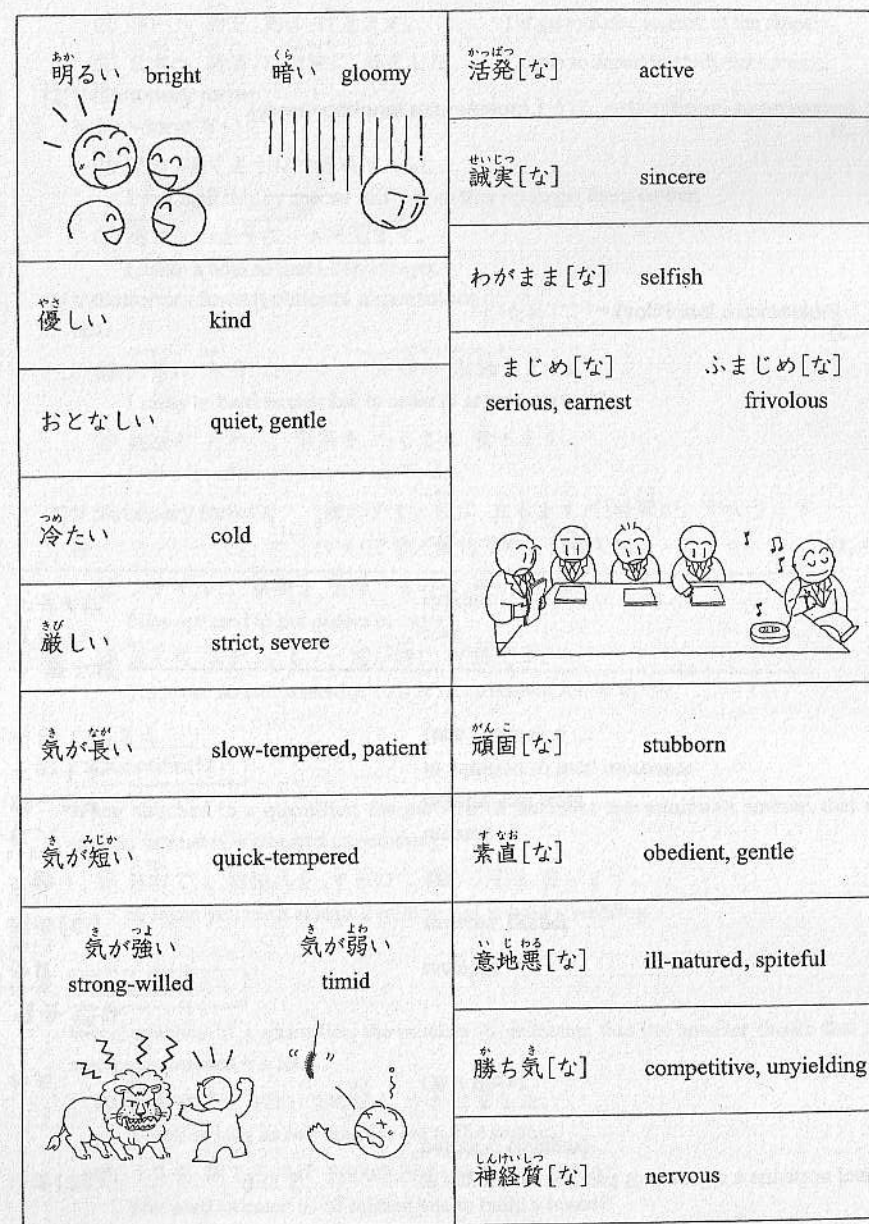 明るい bright 暗い gloomy
優しい kind
おとなしい quiet, gentle
冷たい cold
厳しい strict, severe
気が長い slow-tempered, patient
気が短い quick-tempered
気が強い 気が弱い
strong-willed timid
活発[な] active
誠実[な] sincere
わがまま[な] selfish
まじめ[な] ふまじめ[な]
serious, earnest frivolous
頑固[な] stubborn
素直[な] obedient, gentle
意地悪[な] ill-natured, spiteful
勝ち気[な] competitive, unyielding
神経質[な] nervous